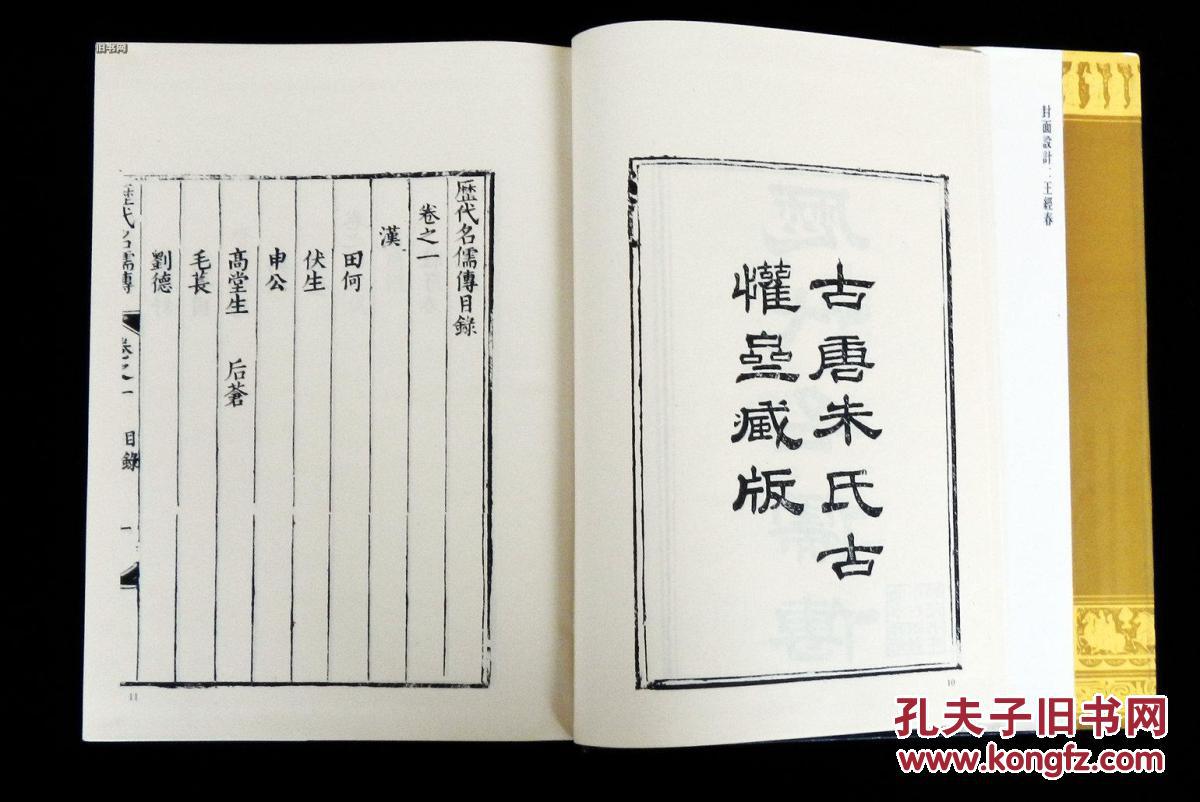 封面設計：王經春
古唐朱氏古
懽壆臧版
10
歷代名儒傳目錄
卷之一
漢
田何
伏生
申公
高堂生 后蒼
毛萇
劉德
歷代名儒傳 卷之一 目錄 一
11
旧书网
孔夫子旧书网
www.kongfz.com